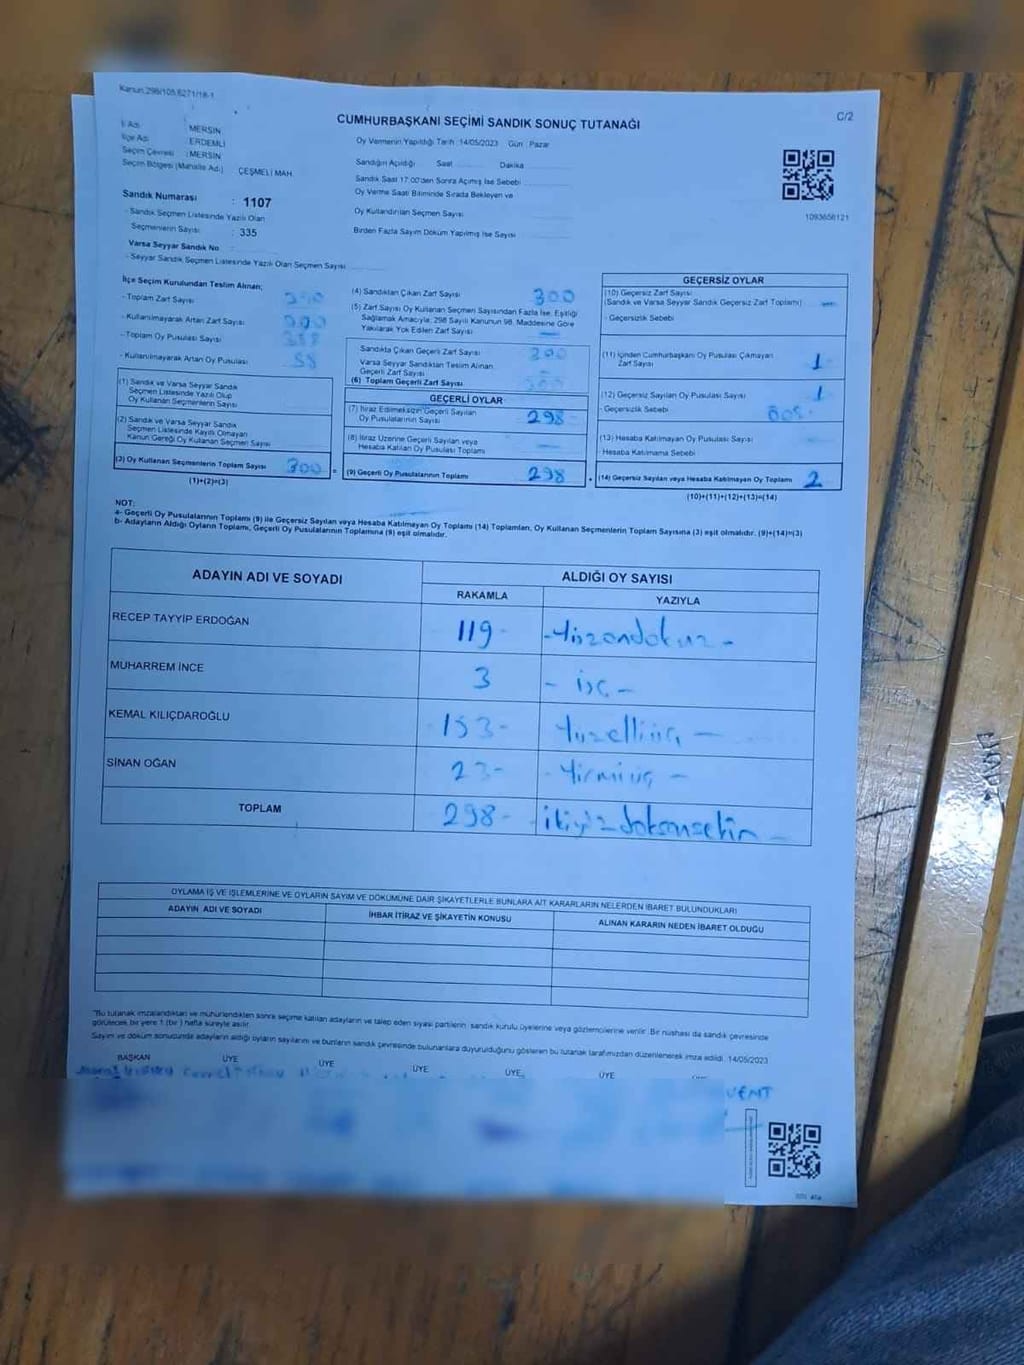 Kanun:298/105,6271/18-1
C/2
CUMHURBAŞKANI SEÇİMİ SANDIK SONUÇ TUTANAĞI
İl Adı : MERSİN
İlçe Adı : ERDEMLİ
Seçim Çevresi : MERSİN
Seçim Bölgesi (Mahalle Adı) ÇEŞMELİ MAH.
Oy Vermenin Yapıldığı Tarih :14/05/2023 Gün : Pazar
Sandığın Açıldığı Saat Dakika
Sandık Saat 17:00'den Sonra Açılmış İse Sebebi
Oy Verme Saati Bitiminde Sırada Bekleyen ve
Oy Kullandırılan Seçmen Sayısı
Birden Fazla Sayım Döküm Yapılmış İse Sayısı
1093656121
Sandık Numarası : 1107
- Sandık Seçmen Listesinde Yazılı Olan
Seçmenlerin Sayısı : 335
Varsa Seyyar Sandık No :
- Seyyar Sandık Seçmen Listesinde Yazılı Olan Seçmen Sayısı
İlçe Seçim Kurulundan Teslim Alınan;
- Toplam Zarf Sayısı
- Kullanılmayarak Artan Zarf Sayısı
- Toplam Oy Pusulası Sayısı
- Kullanılmayarak Artan Oy Pusulası 58
(1) Sandık ve Varsa Seyyar Sandık
Seçmen Listesinde Yazılı Olup
Oy Kullanan Seçmenlerin Sayısı
(2) Sandık ve Varsa Seyyar Sandık
Seçmen Listesinde Kayıtlı Olmayan
Kanun Gereği Oy Kullanan Seçmen Sayısı
(3) Oy Kullanan Seçmenlerin Toplam Sayısı 300
(1)+(2)=(3)
(4) Sandıktan Çıkan Zarf Sayısı 300
(5) Zarf Sayısı Oy Kullanan Seçmen Sayısından Fazla İse, Eşitliği
Sağlamak Amacıyla; 298 Sayılı Kanunun 98. Maddesine Göre
Yakılarak Yok Edilen Zarf Sayısı —
Sandıkta Çıkan Geçerli Zarf Sayısı 300
Varsa Seyyar Sandıktan Teslim Alınan
Geçerli Zarf Sayısı —
(6) Toplam Geçerli Zarf Sayısı 300
GEÇERLİ OYLAR
(7) İtiraz Edilmeksizin Geçerli Sayılan
Oy Pusulalarının Sayısı 298
(8) İtiraz Üzerine Geçerli Sayılan veya
Hesaba Katılan Oy Pusulası Toplamı —
(9) Geçerli Oy Pusulalarının Toplamı 298
GEÇERSİZ OYLAR
(10) Geçersiz Zarf Sayısı
(Sandık ve Varsa Seyyar Sandık Geçersiz Zarf Toplamı) —
- Geçersizlik Sebebi
(11) İçinden Cumhurbaşkanı Oy Pusulası Çıkmayan
Zarf Sayısı 1
(12) Geçersiz Sayılan Oy Pusulası Sayısı 1
- Geçersizlik Sebebi
(13) Hesaba Katılmayan Oy Pusulası Sayısı
Hesaba Katılmama Sebebi
(14) Geçersiz Sayılan veya Hesaba Katılmayan Oy Toplamı 2
(10)+(11)+(12)+(13)=(14)
NOT:
a- Geçerli Oy Pusulalarının Toplamı (9) ile Geçersiz Sayılan veya Hesaba Katılmayan Oy Toplamı (14) Toplamları, Oy Kullanan Seçmenlerin Toplam Sayısına (3) eşit olmalıdır. (9)+(14)=(3)
b- Adayların Aldığı Oyların Toplamı, Geçerli Oy Pusulalarının Toplamına (9) eşit olmalıdır.
ADAYIN ADI VE SOYADI
ALDIĞI OY SAYISI
RAKAMLA YAZIYLA
RECEP TAYYİP ERDOĞAN 119- -Yüzondokuz-
MUHARREM İNCE 3 - üç -
KEMAL KILIÇDAROĞLU 153- Yüzelliüç —
SİNAN OĞAN 23- - Yirmiüç -
TOPLAM 298- ikiyüzdoksansekiz —
OYLAMA İŞ VE İŞLEMLERİNE VE OYLARIN SAYIM VE DÖKÜMÜNE DAİR ŞİKAYETLERLE BUNLARA AİT KARARLARIN NELERDEN İBARET BULUNDUKLARI
ADAYIN ADI VE SOYADI
İHBAR İTİRAZ VE ŞİKAYETİN KONUSU
ALINAN KARARIN NEDEN İBARET OLDUĞU
"Bu tutanak imzalandıktan ve mühürlendikten sonra seçime katılan adayların ve talep eden siyasi partilerin sandık kurulu üyelerine veya gözlemcilerine verilir. Bir nüshası da sandık çevresinde
görülecek bir yere 1 (bir ) hafta süreyle asılır.
Sayım ve döküm sonucunda adayların aldığı oyların sayılarını ve bunların sandık çevresinde bulunanlara duyurulduğunu gösteren bu tutanak tarafımızdan düzenlenerek imza edildi. 14/05/2023
BAŞKAN ÜYE ÜYE ÜYE ÜYE ÜYE